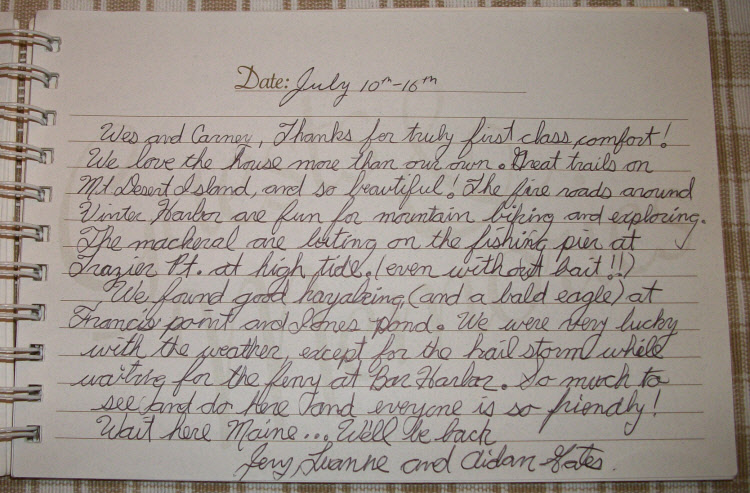 Date: July 10th-16th
Wes and Carney, Thanks for truly first class comfort!
We love the house more than our own. Great trails on
Mt Desert Island, and so beautiful! The fire roads around
Winter Harbor are fun for mountain biking and exploring.
The mackeral are biting on the fishing pier at
Frazier Pt. at high tide. (even without bait!!)
We found good kayaking (and a bald eagle) at
Francis point and Jones pond. We were very lucky
with the weather, except for the hail storm while
waiting for the ferry at Bar Harbor. So much to
see and do here and everyone is so friendly!
Wait here Maine... We'll be back
Jerry, Luanne and Aidan Gates.